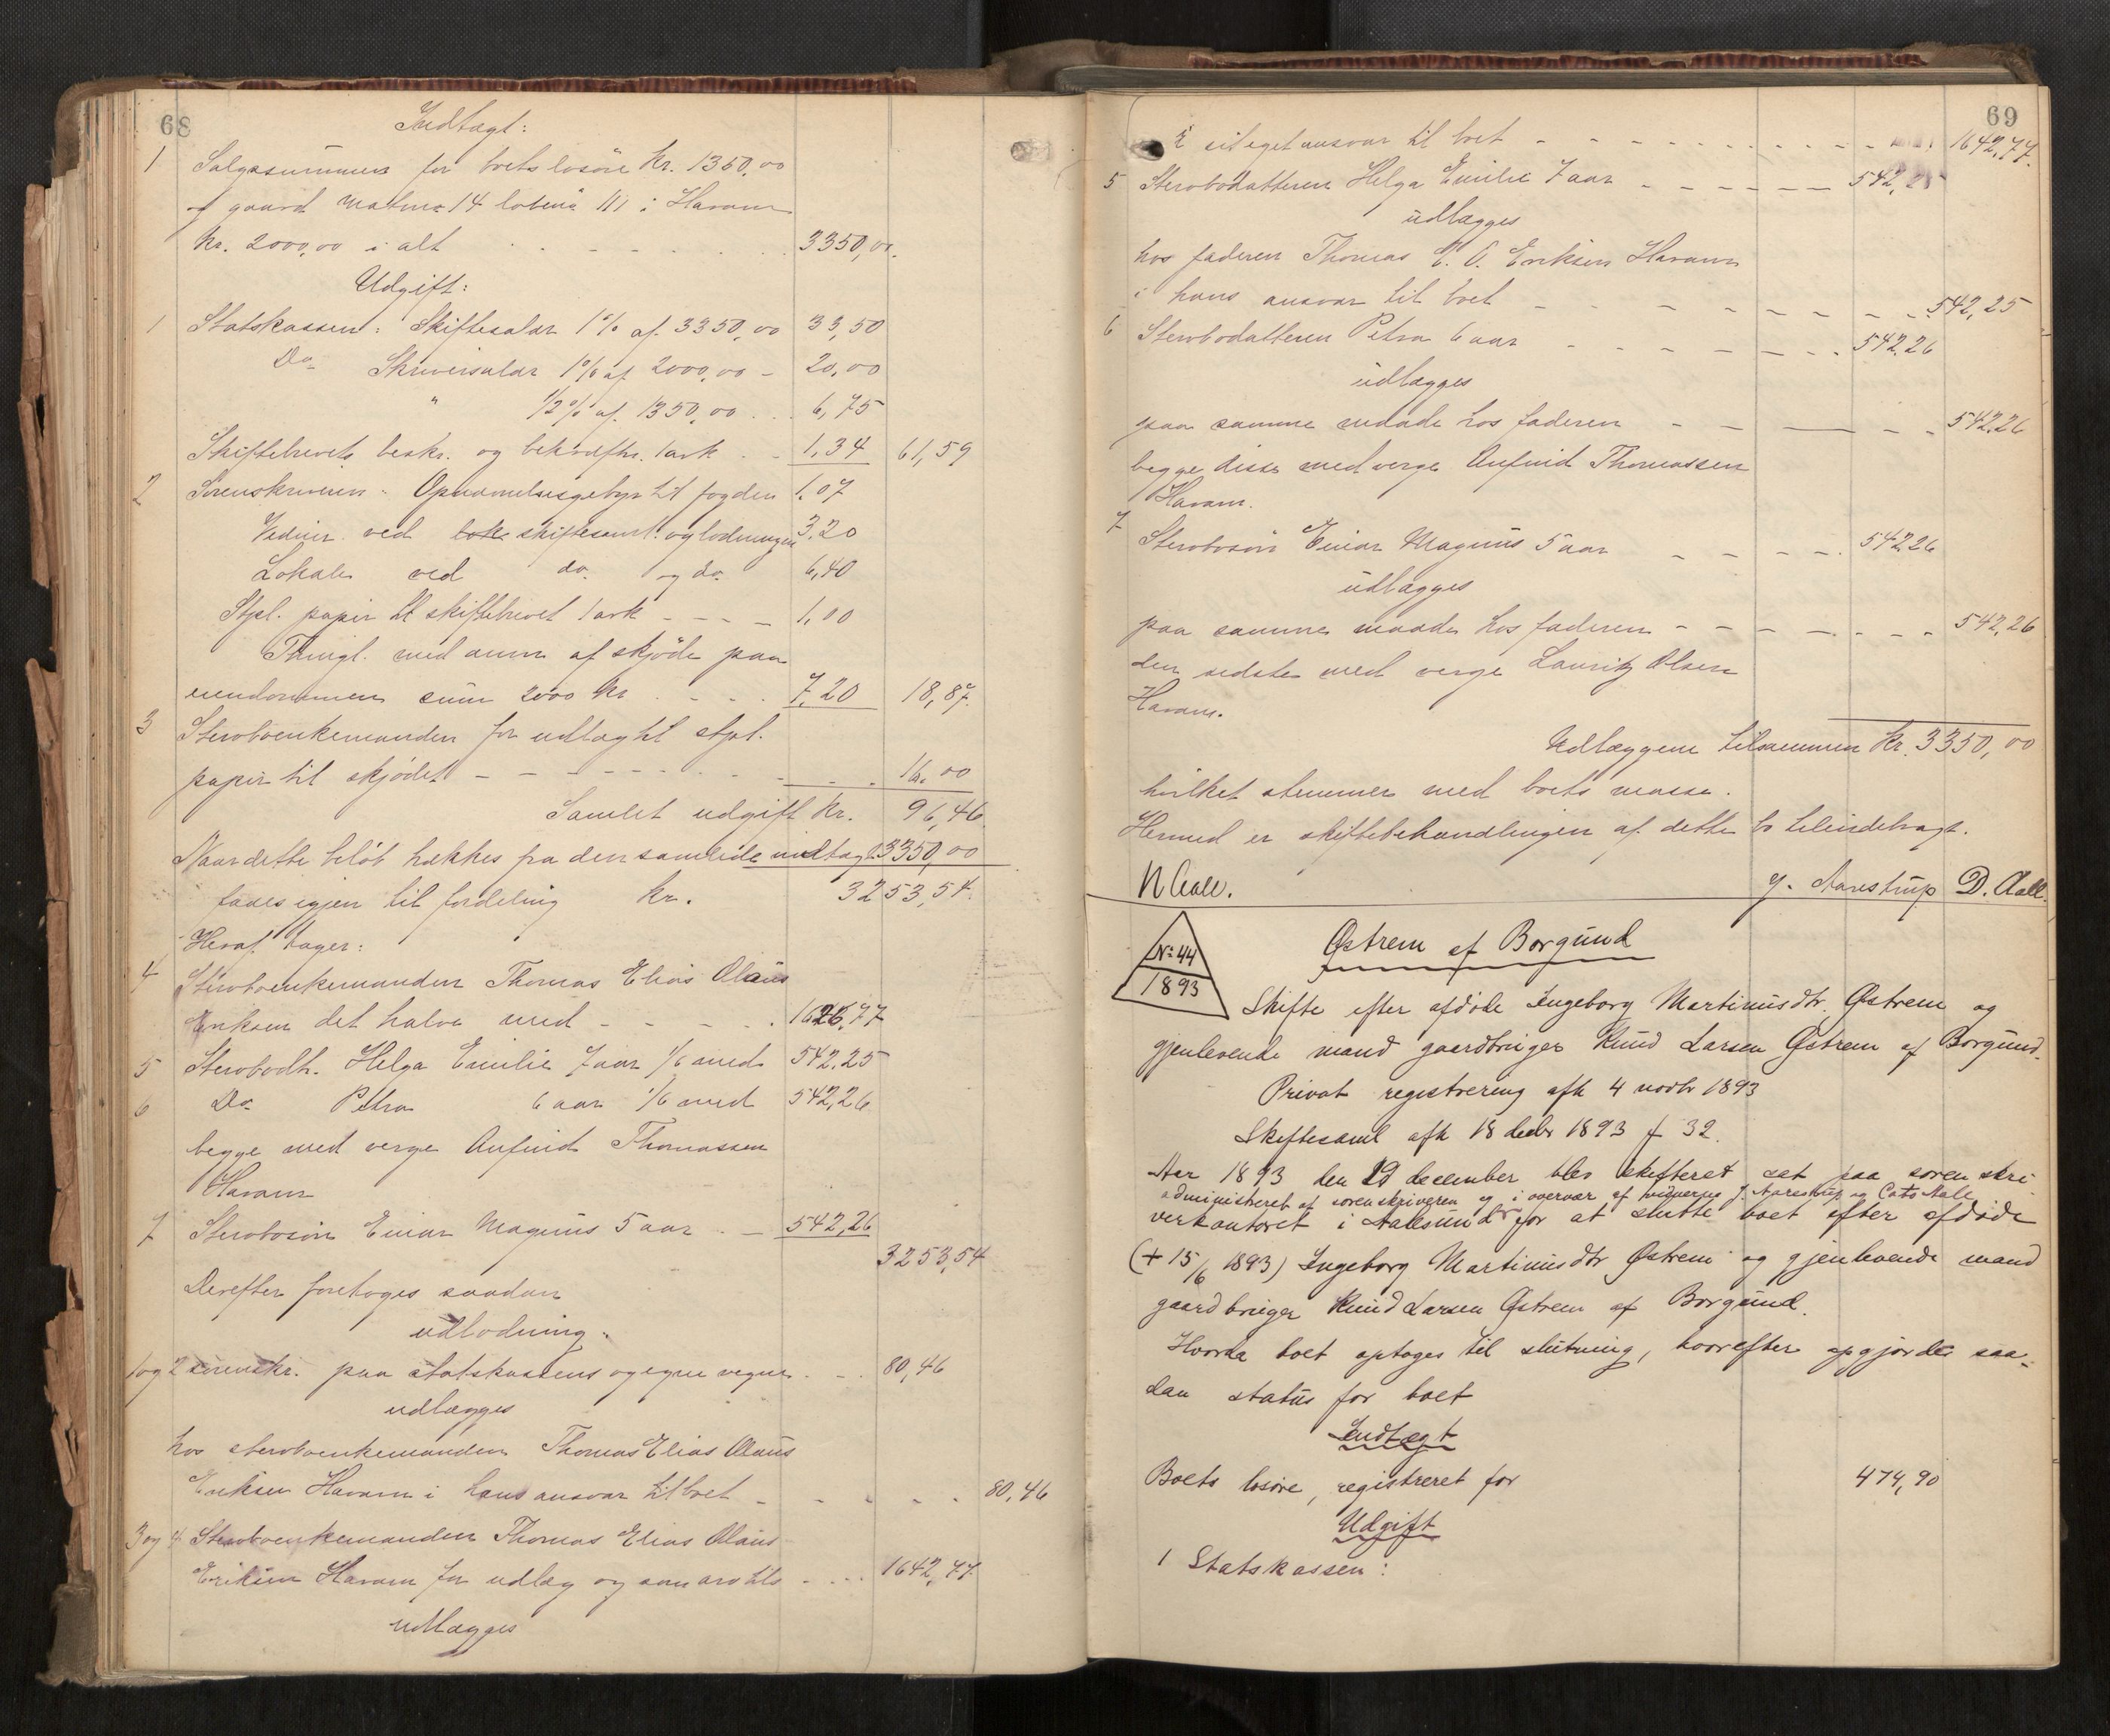 68
Indtægt:
1 Salgssummen for boets løsøre kr. 1350,00
og gaard matrno 14 løbeno III i Haram
kr. 2000,00 i alt 3350,00.
Udgift:
1 Statskassen: Skiftesalær 1% af 3350,00 33,50
Do Skriversalær 1% af 2000,00 - 20,00
" 1/2% af 1350,00 6,75
Skiftebrevets beskr. og bekræftn. 1 ark 1,34 61,59
2 Sorenskriveren: Opnævnelsesgebyr til fogden 1,07
Vedner ved skiftesaml. og lodningen 3,20
Lokale ved do. og do. 6,40
Stpl. papir til skiftebrevet 1 ark - - - 1,00
Thingl. med anm af skjøde paa
eiendommen sum 2000 kr 7,20 18,87.
3 Sterboenkemanden for udlagt stpl.
papir til skjødet 16,00
Samlet udgift kr. 96,46
Naar dette beløb trækkes fra den samlede indtægt 3350,00
faaes igjen til fordeling kr. 3253,54.
Heraf tager:
4 Sterboenkemanden Thomas Elias Olaus
Eriksen det halve med - - - - 1626,77
5 Sterbodtr. Helga Emilie 7 aar 1/6 med 542,25
6 Do Petra 6 aar 1/6 med 542,26
begge med verge Anfind Thomassen
Haram
7 Sterbosøn Einar Magnus 5 aar - 542,26
3253,54
Derefter foretoges saadan
udlodning:
1 og 2 sorenskr. paa statskassens og egne vegne 80,46
udlægges
hos sterboenkemanden Thomas Elias Olaus
Eriksen Haram i hans ansvar til boet - 80,46
3 og 4 Sterboenkemanden Thomas Elias Olaus
Eriksen Haram for udlæg og som arv tils 1642,77
udlægges
69
i sit eget ansvar til boet 1642,77.
5 Sterbodatteren Helga Emilie 7 aar 542,25
udlægges
hos faderen Thomas E. O. Eriksen Haram
i hans ansvar til boet 542,25
6 Sterbodatteren Petra 6 aar 542,26
udlægges
paa samme maade hos faderen 542,26
begge disse med verge Anfind Thomassen
Haram.
7 Sterbosøn Einar Magnus 5 aar 542,26
udlægges
paa samme maade hos faderen 542,26
den sidste med verge Lauritz Olsen
Haram.
Udlæggene tilsammen kr. 3350,00
hvilket stemmer med boets masse.
Hermed er skiftebehandlingen af dette bo tilendebragt.
N Aall. J. Aarestrup D. Aall.
No 44
1893
Østrem af Borgund
Skifte efter afdøde Ingeborg Martinusdtr. Østrem og
gjenlevende mand gaardbruger Knud Larsen Østrem af Borgund.
Privat registrering afh 4 novbr 1893
Skiftesaml afh 18 decbr 1893 f 32.
Aar 1893 den 29 december blev skifteret sat paa sorenskri-
administreret af sorenskriveren og i overvær af vidnerne J. Aarestrup og Cato Aall
verkontoret i Aalesund for at slutte boet efter afdøde
(+ 15/6 1893) Ingeborg Martinusdtr Østrem og gjenlevende mand
gaardbruger Knud Larsen Østrem af Borgund.
Hvorda boet optoges til slutning, hvorefter opgjordes saa-
dan status for boet
Indtægt
Boets løsøre, registreret for 474,90
Udgift
1 Statskassen: